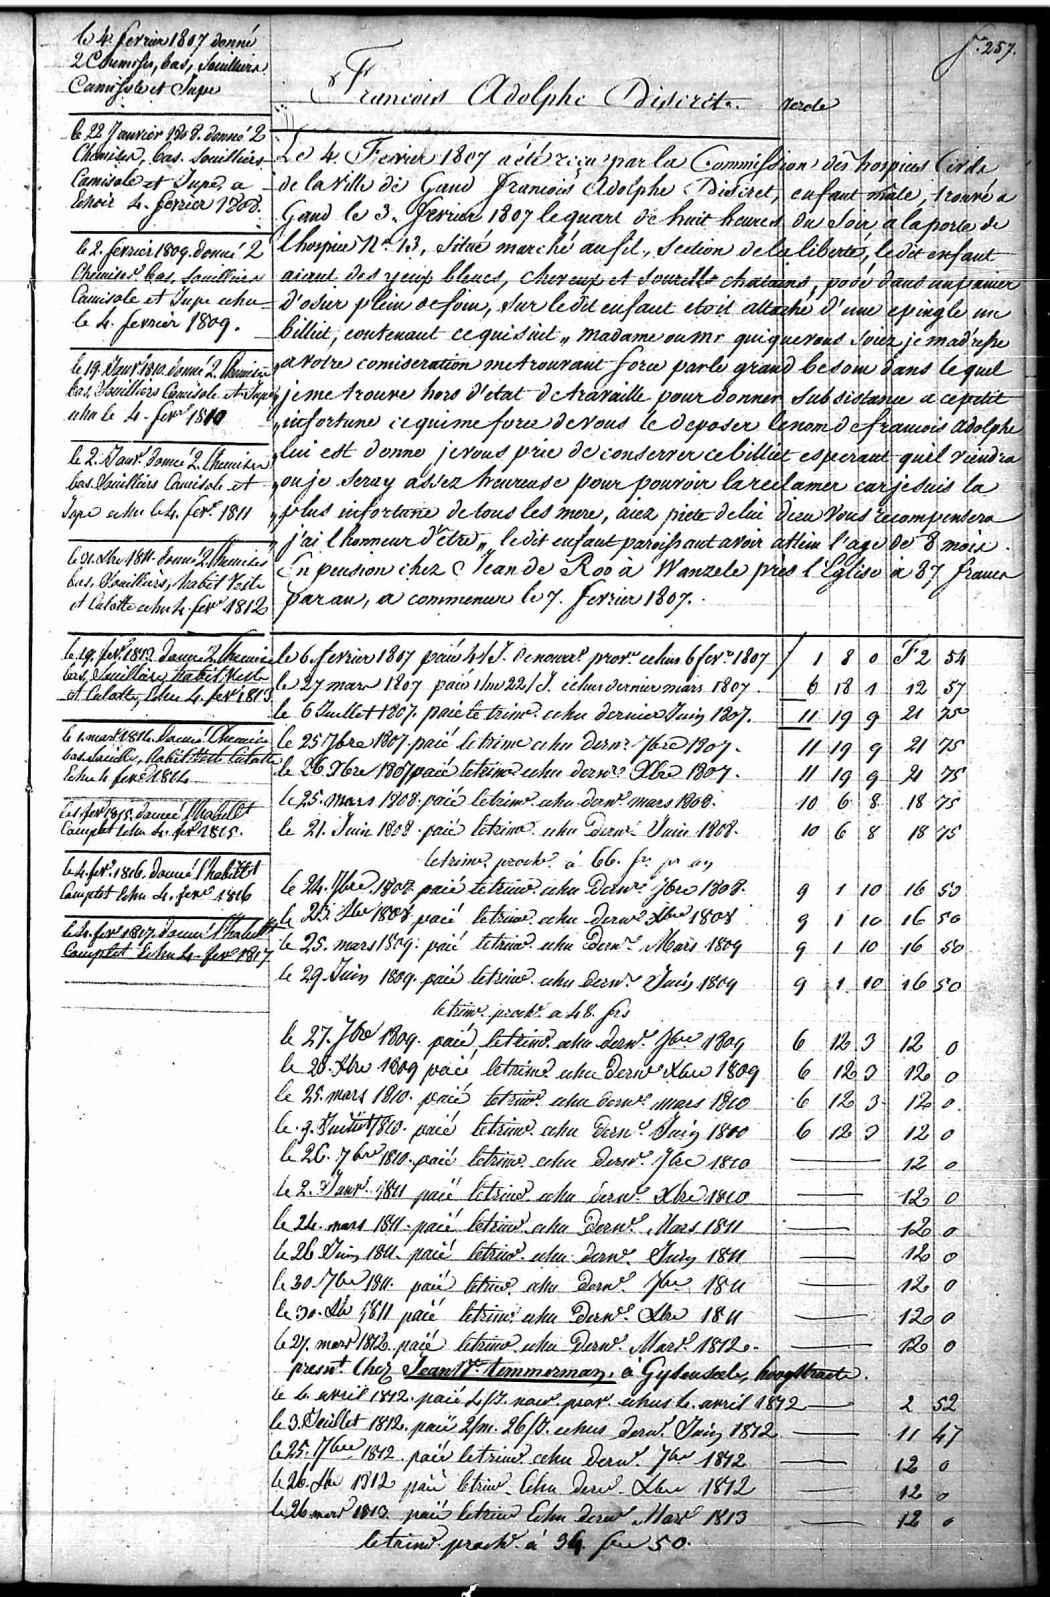 fo. 257.
François Adolphe Discret. verole
Le 4. Fevrier 1807 a été reçu par la Commission des hospices Civils
de la ville de Gand François Adolphe Discret, enfant mâle, trouvé a
Gand le 3. fevrier 1807 le quart de huit heures du Soir a la porte de
l'hospice No. 13, situé marché au fil, Section de la liberté, le dit enfant
aiant des yeux bleus, cheveux et sourcils chatains, posé dans un panier
d'osier plein de foin, sur le dit enfant etoit attaché d'une epingle un
billiet, contenant ce qui suit „ Madame ou Mr qui que vous soiez je m'adresse
„ a votre comiseration me trouvant force par le grand besoin dans le quel
„ je me trouve hors d'etat de travaille pour donner subsistance a ce petit
„ infortune ce qui me force de vous le deposer le nom de francois adolphe
„ lui est donne je vous prie de conserver ce billiet esperant qu'il viendra
„ ou je seray assez heureuse pour pouvoir la reclamer car je suis la
„ plus infortune de tous les mere, aiez piete de lui dieu vous recompensera
„ j'ai l'honneur d'être „ le dit enfant paroissant avoir atteint l'age de 8 mois.
En pension chez Jean de Roo a Wanzele pres l'Eglise a 87 francs
par an, a commencer le 7. fevrier 1807.
le 6 fevrier 1807 paié 4/J. de nourre prove echus 6 fevr. 1807 1 8 0 F 2 54
le 27 mars 1807 paié 1/m 22/J. echus dernier mars 1807. 6 18 1 12 57
le 6 Juillet 1807. paié le trime echu dernier Juin 1807. 11 19 9 21 75
le 25 7bre 1807. paié le trime echu dernr. 7bre 1807. 11 19 9 21 75
le 26 Xbre 1807 paié le trime echu dernr. Xbre 1807. 11 19 9 21 75
le 25. mars 1808. paié le trime echu dernr. mars 1808. 10 6 8 18 75
le 21. Juin 1808. paié le trime echu dernr. Juin 1808. 10 6 8 18 75
le trime. proche. à 66. fr. pr an
le 24. 7bre 1808. paié le trime echu dernr. 7bre 1808. 9 1 10 16 50
le 23. Xbre 1808. paié le trime echu dernr. Xbre 1808 9 1 10 16 50
le 25. mars 1809. paié le trime echu dernr. Mars 1809 9 1 10 16 50
le 29. Juin 1809. paié le trime echu dernr. Juin 1809 9 1 10 16 50
le trime. proche. a 48. frs
le 27. 7bre 1809. paié le trime echu dernr. 7bre 1809 6 12 3 12 0
le 28. Xbre 1809 paié le trime echu dernr. Xbre 1809 6 12 3 12 0
le 25. mars 1810. paié le trime echu dernr. mars 1810 6 12 3 12 0
le 9. Juillet 1810. paié le trime echu dernr. Juin 1810 6 12 3 12 0
le 26. 7bre 1810. paié le trime echu dernr. 7bre 1810 — 12 0
le 2. Janvr. 1811 paié le trime echu dernr. Xbre 1810 — 12 0
le 24. mars 1811. paié le trime echu dernr. Mars 1811 — 12 0
le 26 Juin 1811. paié le trime echu dernr. Juin 1811 — 12 0
le 30. 7bre 1811. paié le trime echu dernr. 7bre 1811 — 12 0
le 30. Xbre 1811 paié le trime echu dernr. Xbre 1811 — 12 0
le 27. mars 1812. paié le trime echu dernr. Mars 1812. — 12 0
presnt. Chez Jean Bte. temmerman. à Gysenzeele, hoogstraete.
le 4. avril 1812. paié 4/J. nour. prov. echus 4. avril 1812 — 2 52
le 3. Juillet 1812. paié 2/m. 26/J. echus dernr. Juin 1812 — 11 47
le 25. 7bre 1812. paié le trime echu dernr. 7bre 1812 — 12 0
le 26. Xbre 1812 paié le trime Echu dernr. Xbre 1812 — 12 0
le 26 mars 1813. paié le trime Echu dernr. Mars 1813 — 12 0
le trime proche. à 34 frs 50.
le 4 fevrier 1807 donné
2 Chemises, bas, Souilliers
Camisole et Jupe
le 22 Janvier 1808. donné 2
Chemises, bas. Souilliers
Camisole et Jupe, a
echoir 4. fevrier 1808.
le 2. fevrier 1809. donné 2
Chemises bas, Souilliers
Camisole et Jupe echu
le 4. fevrier 1809.
le 19. Janvr. 1810. donné 2. Chemises
bas, Souilliers Camisole et Jupe
echu le 4. fevr. 1810
le 2. Janvr. donné 2. Chemises
bas Souilliers Camisole et
Jupe echu le 4. fevr. 1811
le 31. Xbre 1811. donné 2 Chemises
bas. Souilliers, habit Veste
et Culotte echu 4. fevr. 1812
le 19. fevr. 1813. donné 2 Chemises
bas, Souilliers, habit Veste
et Culotte, Echu 4. fevr. 1813
le 1. mars 1814. Donné Chemise
bas Souillrs, habit Veste Culotte
Echu 4 fevr. 1814
le 1. fevr. 1815. donné l'habillt
Complet Echu 4. fevr. 1815.
le 4. fevr. 1816. donné l'habillt
Complet Echu 4. fevr. 1816
le 4. fevr. 1817. donné l'habillt
Complet Echu 4. fevr. 1817